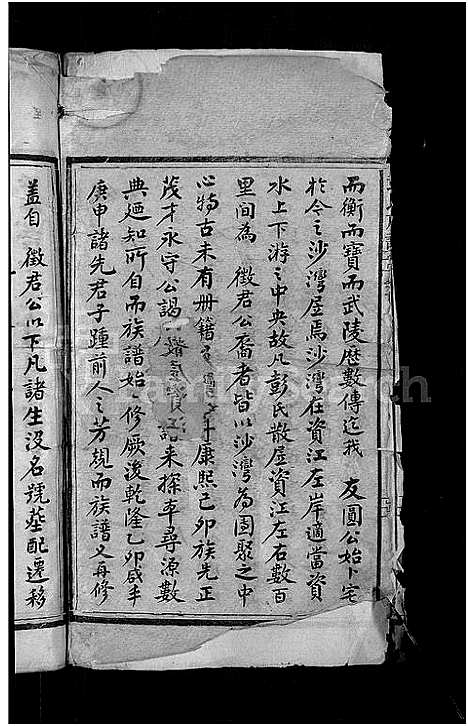 而衡而寶而武陵歷數傳迄我 友圓公始卜宅
於今之沙灣居焉沙灣在資江左岸適當資
水上下游之中央故凡彭氏散居資江左右數百
里間為 徵君公裔者皆以沙灣為團聚之中
心物古未有册籍 康熙己卯族先正
茂才永守公謁 來探本尋源數
典廼知所自而族譜始一修厥後乾隆乙卯咸丰
庚申諸先君子踵前人之芳規而族譜又再修
盖自 徵君公以下凡諸生沒名號塟配遷移
FamilySearch